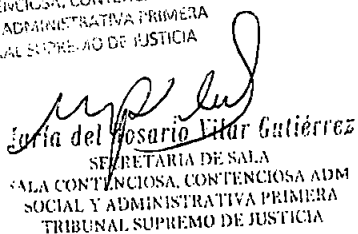 ENCIOSA, CONTENC
ADMINISTRATIVA PRIMERA
AL SUPREMO DE JUSTICIA
del Rosario Vilar Gutiérrez
SECRETARIA DE SALA
SALA CONTENCIOSA, CONTENCIOSA ADM
SOCIAL Y ADMINISTRATIVA PRIMERA
TRIBUNAL SUPREMO DE JUSTICIA